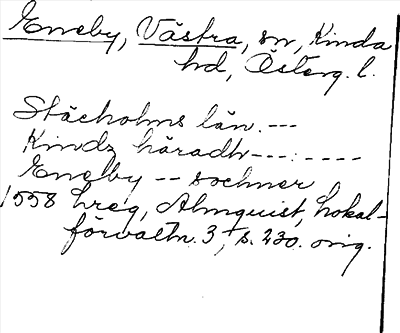 Eneby, Västra, sn, Kinda
hd, Österg. l.
Stächolms län. ---
Kindz häradh---:----
Enelby -- sochner
1558 hreg, Almquist, Lokal-
förvaltn. 3, s. 230. orig.